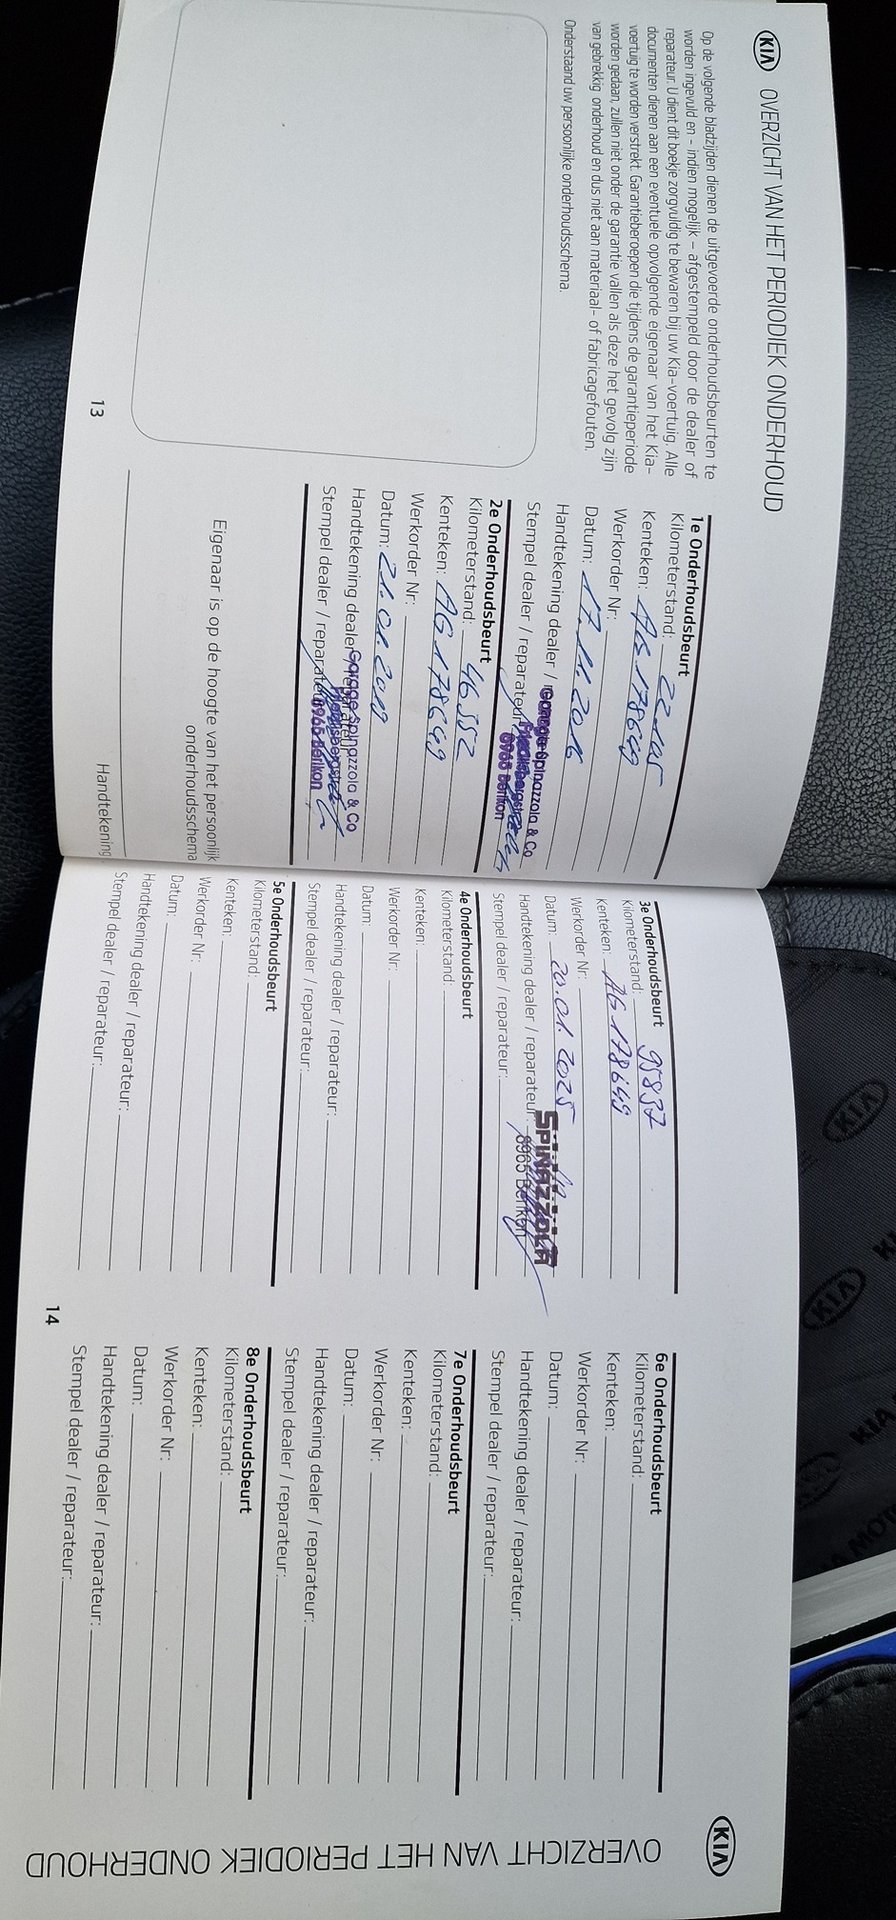 KIA OVERZICHT VAN HET PERIODIEK ONDERHOUD
Op de volgende bladzijden dienen de uitgevoerde onderhoudsbeurten te
worden ingevuld en - indien mogelijk - afgestempeld door de dealer of
reparateur. U dient dit boekje zorgvuldig te bewaren bij uw Kia-voertuig. Alle
documenten dienen aan een eventuele opvolgende eigenaar van het Kia-
voertuig te worden verstrekt. Garantieberoepen die tijdens de garantieperiode
worden gedaan, zullen niet onder de garantie vallen als deze het gevolg zijn
van gebrekkig onderhoud en dus niet aan materiaal- of fabricagefouten.
Onderstaand uw persoonlijke onderhoudsschema.
13
1e Onderhoudsbeurt
Kilometerstand: 22105
Kenteken: AG 178649
Werkorder Nr:
Datum: 17.11.2016
Handtekening dealer /
Garage Spinazzola & Co
Stempel dealer / reparateur:
8965 Berikon
2e Onderhoudsbeurt
Kilometerstand: 46552
Kenteken: AG 178649
Werkorder Nr:
Datum: 21.01.2019
Handtekening dealer / reparateur:
Garage Spinazzola & Co
Stempel dealer / reparateur:
8965 Berikon
Eigenaar is op de hoogte van het persoonlijk
onderhoudsschema
Handtekening
3e Onderhoudsbeurt
Kilometerstand: 95837
Kenteken: AG 178649
Werkorder Nr:
Datum: 20.01.2025
Handtekening dealer / reparateur:
SPINAZZOLA
8965 Berikon
Stempel dealer / reparateur:
4e Onderhoudsbeurt
Kilometerstand:
Kenteken:
Werkorder Nr:
Datum:
Handtekening dealer / reparateur:
Stempel dealer / reparateur:
5e Onderhoudsbeurt
Kilometerstand:
Kenteken:
Werkorder Nr:
Datum:
Handtekening dealer / reparateur:
Stempel dealer / reparateur:
14
6e Onderhoudsbeurt
Kilometerstand:
Kenteken:
Werkorder Nr:
Datum:
Handtekening dealer / reparateur:
Stempel dealer / reparateur:
7e Onderhoudsbeurt
Kilometerstand:
Kenteken:
Werkorder Nr:
Datum:
Handtekening dealer / reparateur:
Stempel dealer / reparateur:
8e Onderhoudsbeurt
Kilometerstand:
Kenteken:
Werkorder Nr:
Datum:
Handtekening dealer / reparateur:
Stempel dealer / reparateur:
KIA
OVERZICHT VAN HET PERIODIEK ONDERHOUD
KIA
KIA
KIA MO